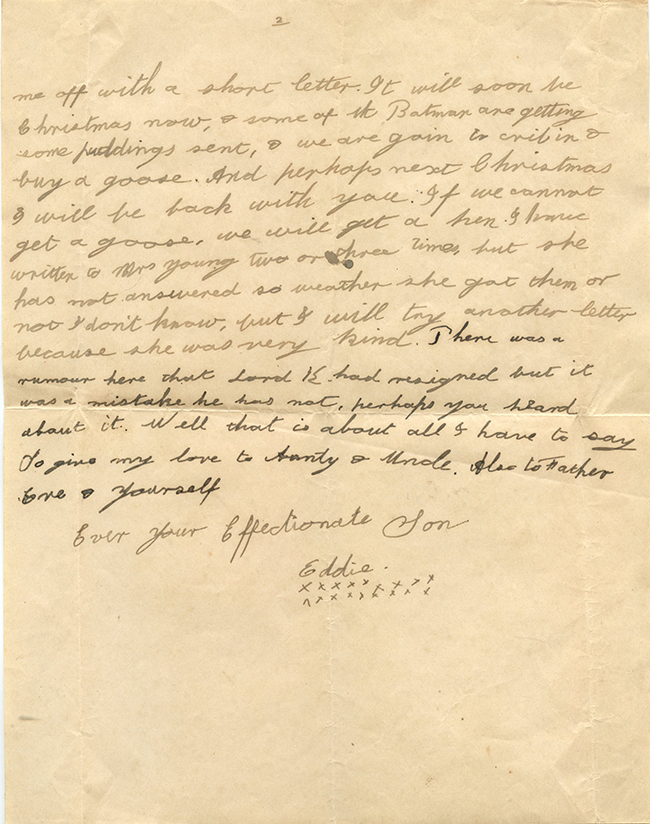 2
me off with a short letter. It will soon be
Christmas now, & some of the Batman are getting
some puddings sent, & we are goin to crib in &
buy a goose. And perhaps next Christmas
I will be back with you. If we cannot
get a goose, we will get a hen. I have
written to Mrs Young two or three times, but she
has not answered so weather she got them or
not I don't know, but I will try another letter
because she was very kind. There was a
rumour here that Lord K. had resigned but it
was a mistake he has not, perhaps you heard
about it. Well that is about all I have to say
So give my love to Aunty & Uncle. Also to Father
Eve & Yourself
Ever your Effectionate Son
Eddie.
x x x x x x x x x
x x x x x x x x